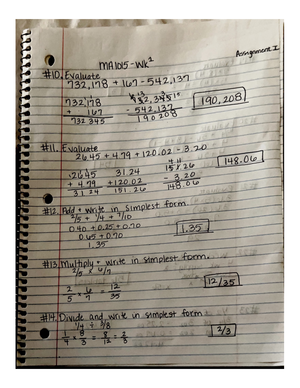 Assignment I
MA1015 - WK2
#10. Evaluate
732,178 + 167 - 542,137
732,178
+ 167
732 345
732,345
- 542,137
190,208
190.208
#11. Evaluate
26.45 + 4.79 + 120.02 - 3.20
26.45
+ 4.79
31.24
31.24
+120.02
151.26
151.26
- 3.20
148.06
148.06
#12. Add + write in simplest form
2/5 + 1/4 + 7/10
0.40 + 0.25 + 0.70
0.65 + 0.70
1.35
1.35
#13. Multiply + write in simplest form.
2/5 x 6/7
2/5 · 6/7 = 12/35
12/35
#14. Divide and write in simplest form
1/4 ÷ 3/8
8/3 = 8/12 = 2/3
2/3